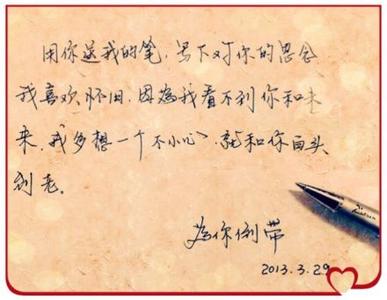 用你送我的笔,写下对你的思念
我喜欢怀旧,因為我看不到你和未
来,我多想一个不小心、就和你白头
到老。
為你倒带
2013.3.29